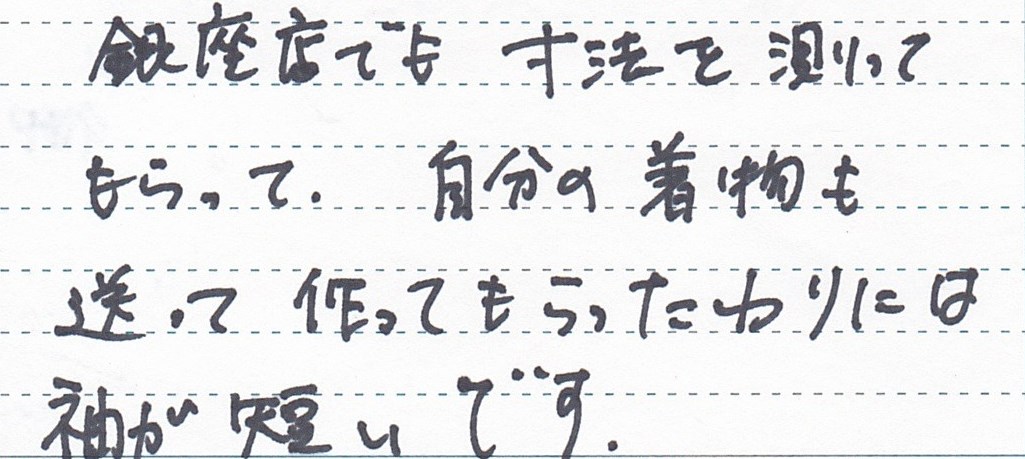 銀座店でも 寸法を 測って
もらって. 自分の 着物も
送って 作ってもらったわりには
袖が 短いです.